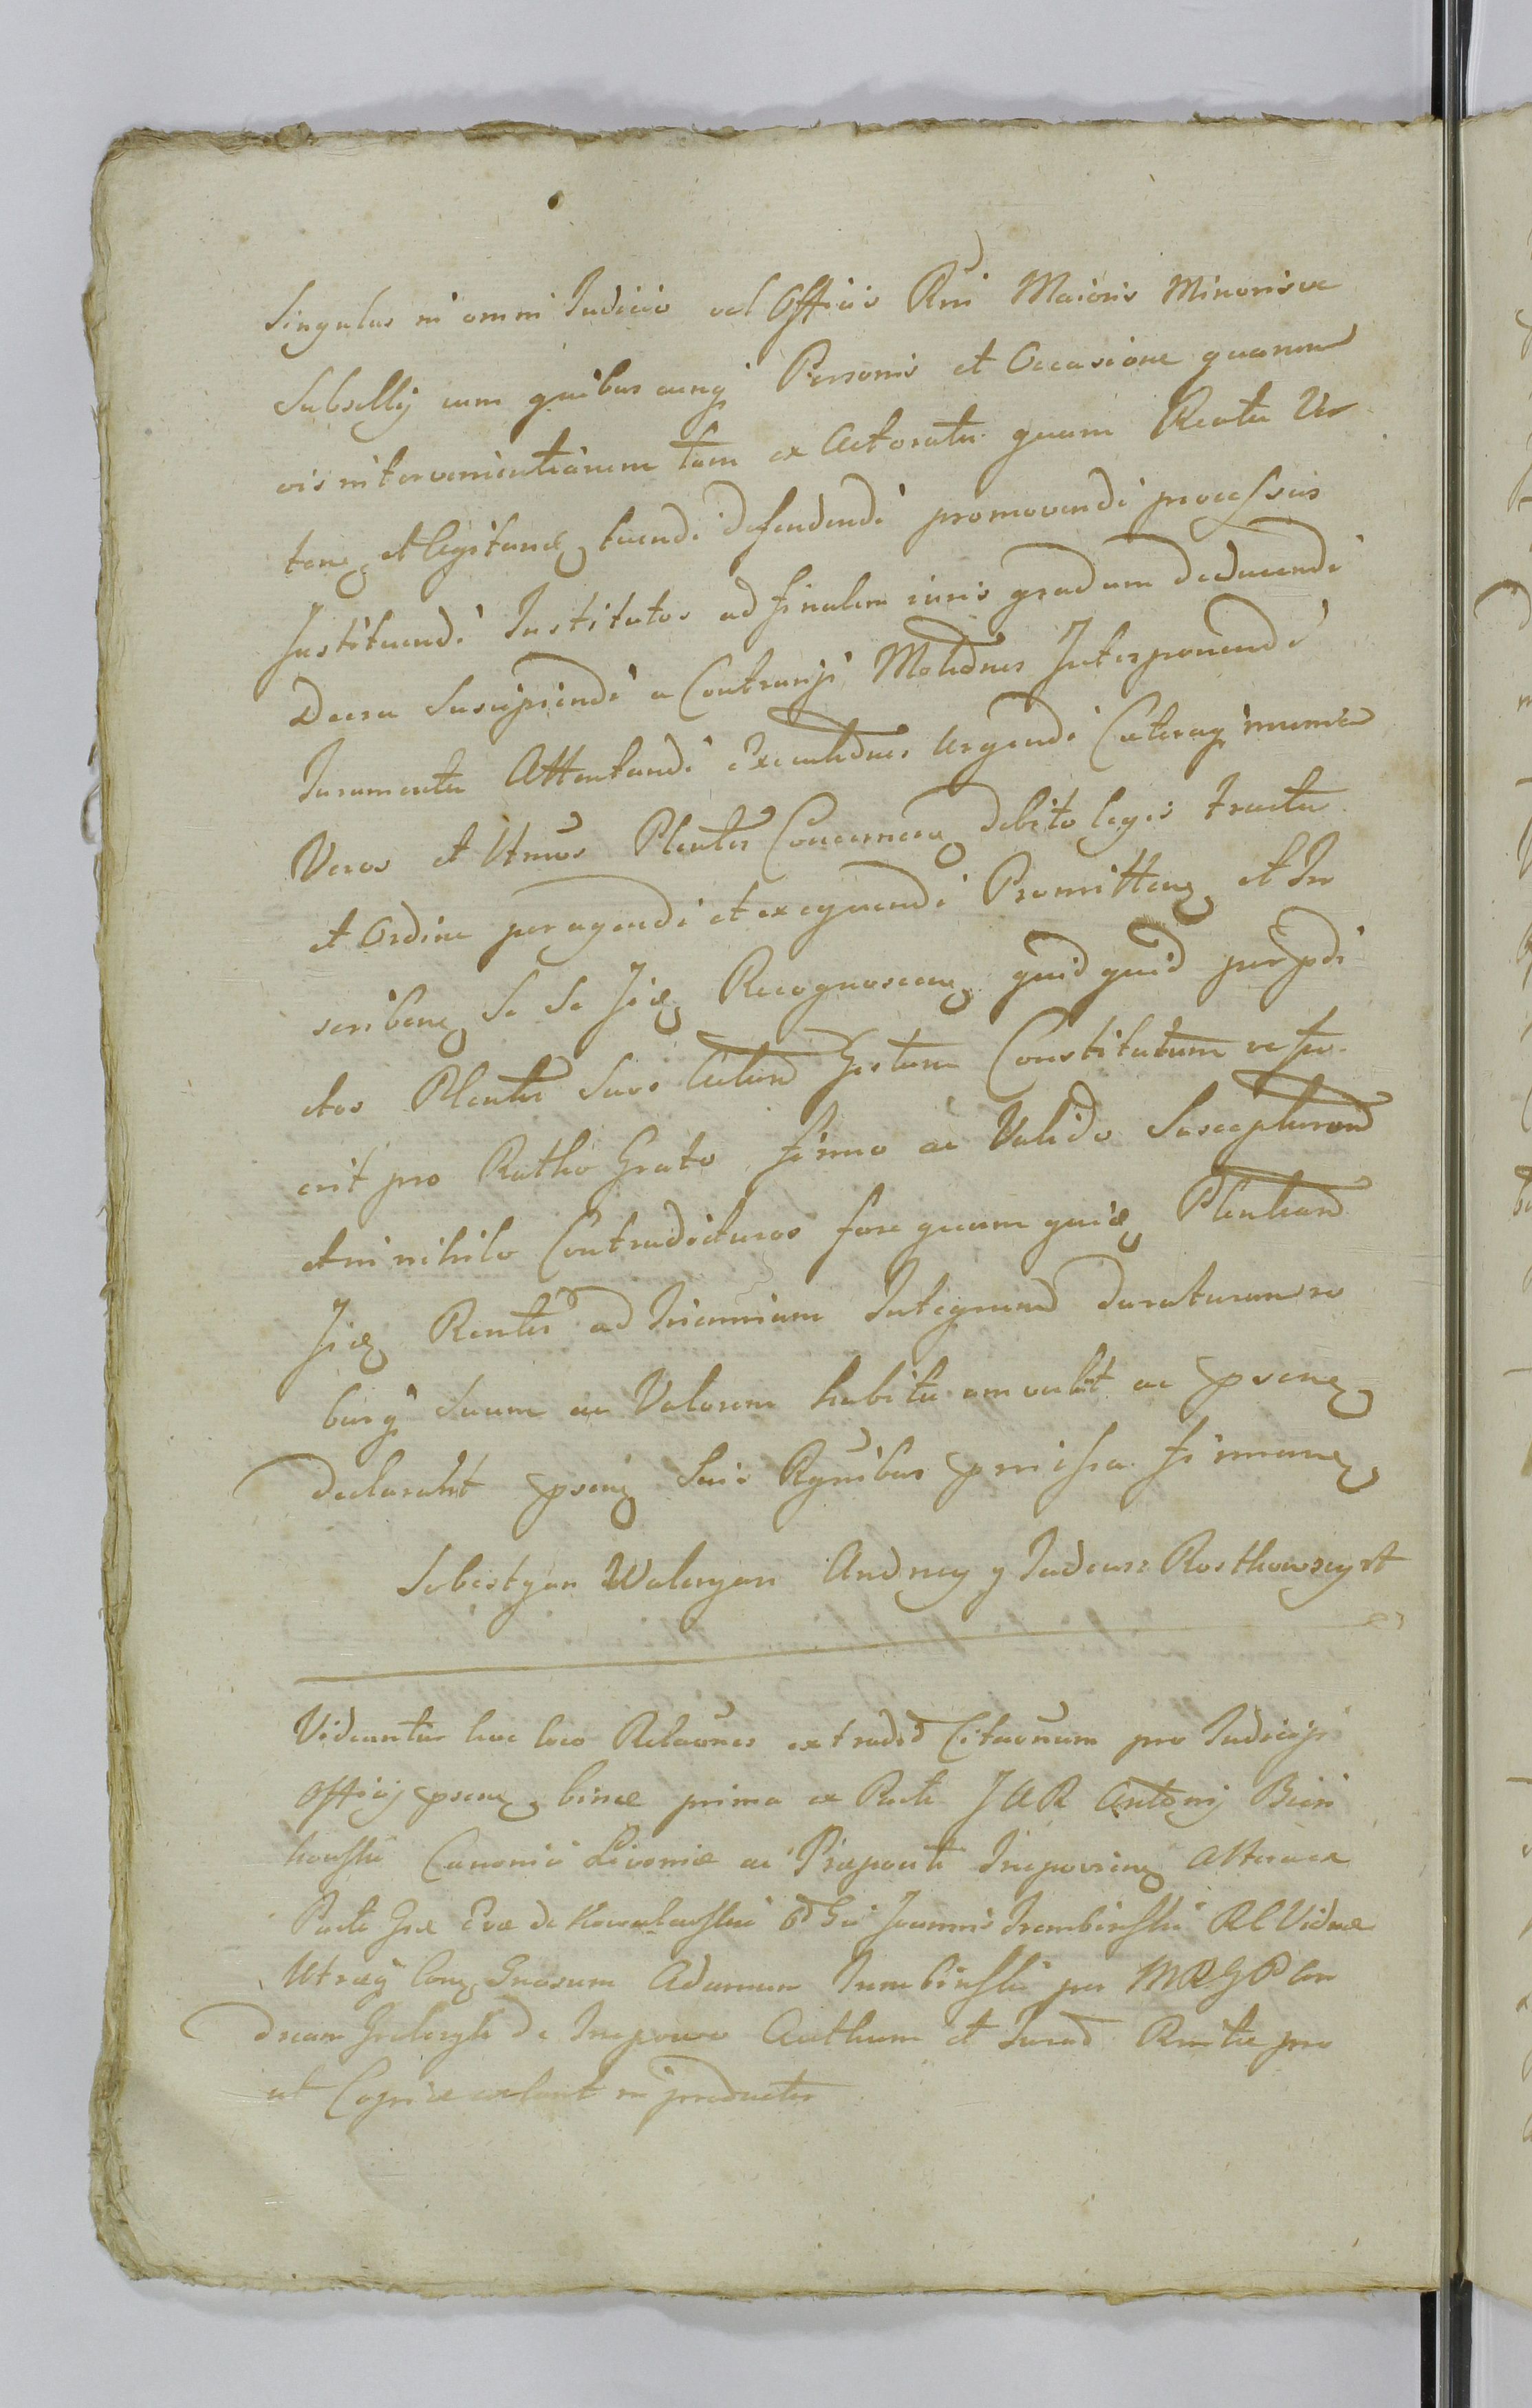 Singulas in omni Judicio vel Officio Rni Maioris Minorisve
Subsellij cum quibuscunq Personis et Occasione quarum
vis intervenientiarum tam ex Actoratu quam Reatu
et legitime tuendi defendendi promovendi processus
Instituendi Institutos ad finalem iuris gradum deducendi
Decreta Suscipiendi a Contrarijs Motiones Interponendi
Juramenta Attentandi Executiones Urgendi Caeteraq munia
Veros et Ltmos Plentes debito legis tractu
et Ordine peragendi et exequendi Promitten et In
scriben Se Se Jid Recognoscen quid quid per pdi
ctos Plentes Suos Actum Gestum Constitutum ve fu
erit pro Ratho Grato firmo ac Valido Suscepturos
et in nihilo Contradicturos fore quam quid Plentiam
Jid Rentes ad Triennium Integrum duraturam ro
burq Suum ac Valorem habituam volunt ac psen
declarant psen Suis Rgnibus pmissa firman
Sebestyan Waleryan Andrzey y Tadeusz Rostkowscy

Videantur hoc loco Relaones extradid Citaonum pro Judicijs
Officij psen binae prima ex Parte J A R Antonij Bien
kowski Canonici Livoniae ac Praepositi Altera ex
Parte Gsae Evae de Kowalewskie Gsi Joannis Trembinski R C Viduae
Utraq con Gnosum Adamum Trembinski per M R G P
de Actham et Jurad pro
ut Copiae in productis